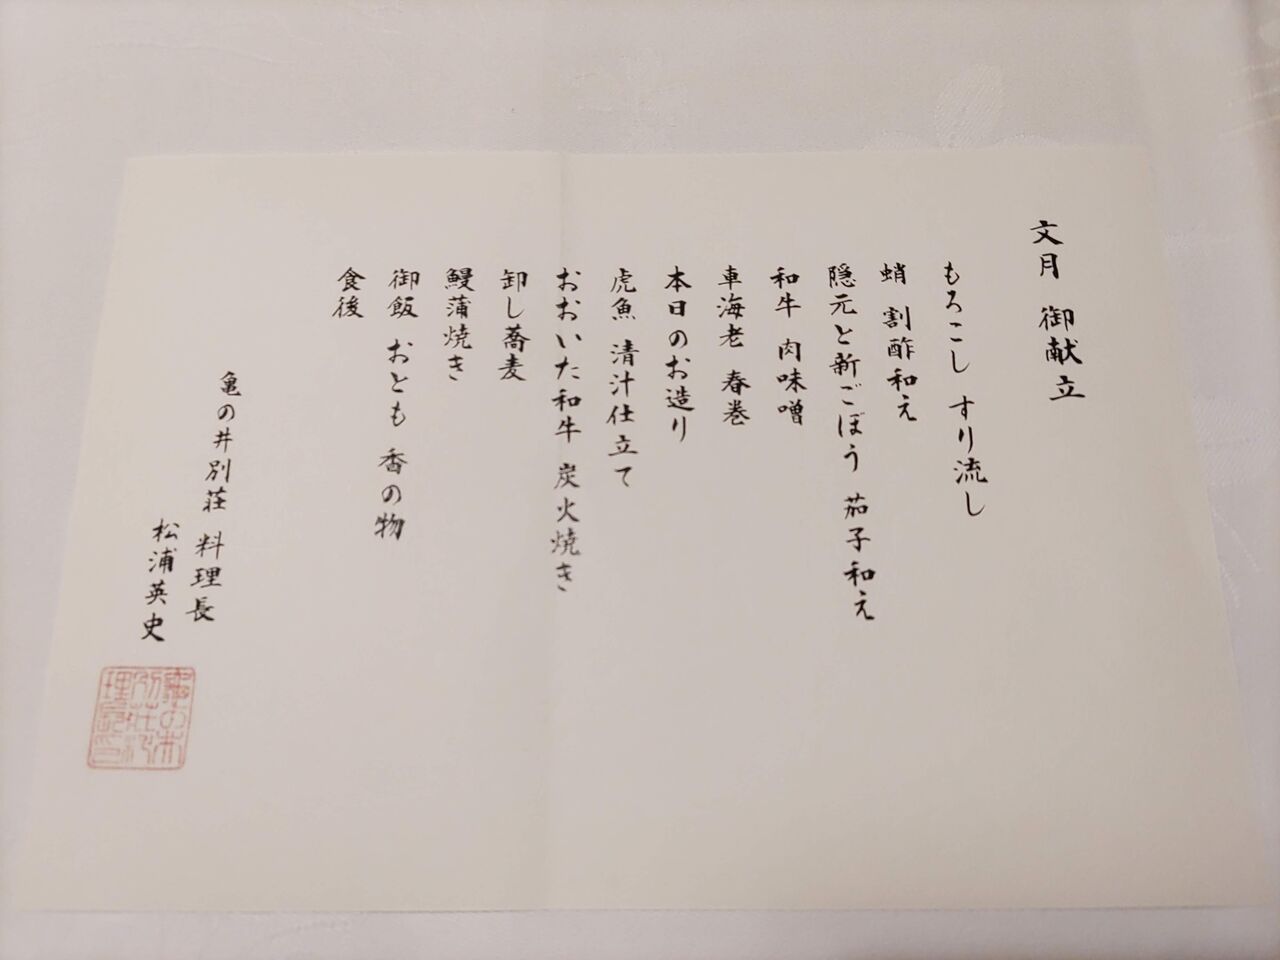 文月 御献立
もろこし すり流し
蛸 割酢和え
隠元と新ごぼう 茄子和え
和牛 肉味噌
車海老 春巻
本日のお造り
虎魚 清汁仕立て
おおいた和牛 炭火焼き
卸し蕎麦
鰻蒲焼き
御飯 おとも 香の物
食後
亀の井別荘 料理長
松浦英史